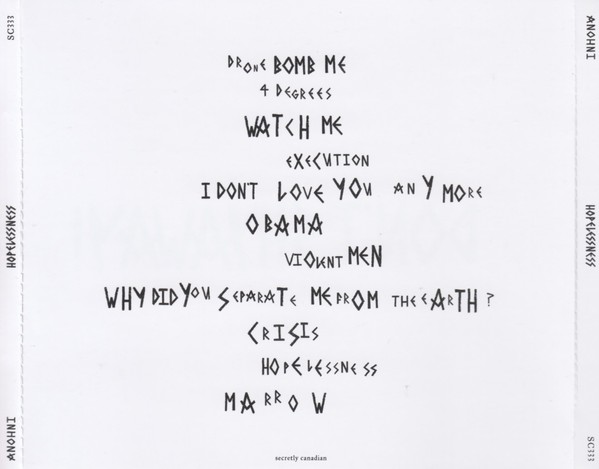 SC333
HOPELESSNESS
ANOHNI
DRONE BOMB ME
4 DEGREES
WATCH ME
EXECUTION
I DONT LOVE YOU ANYMORE
OBAMA
VIOLENT MEN
WHY DID YOU SEPARATE ME FROM THE EARTH?
CRISIS
HOPELESSNESS
MARROW
secretly canadian
ANOHNI
HOPELESSNESS
SC333